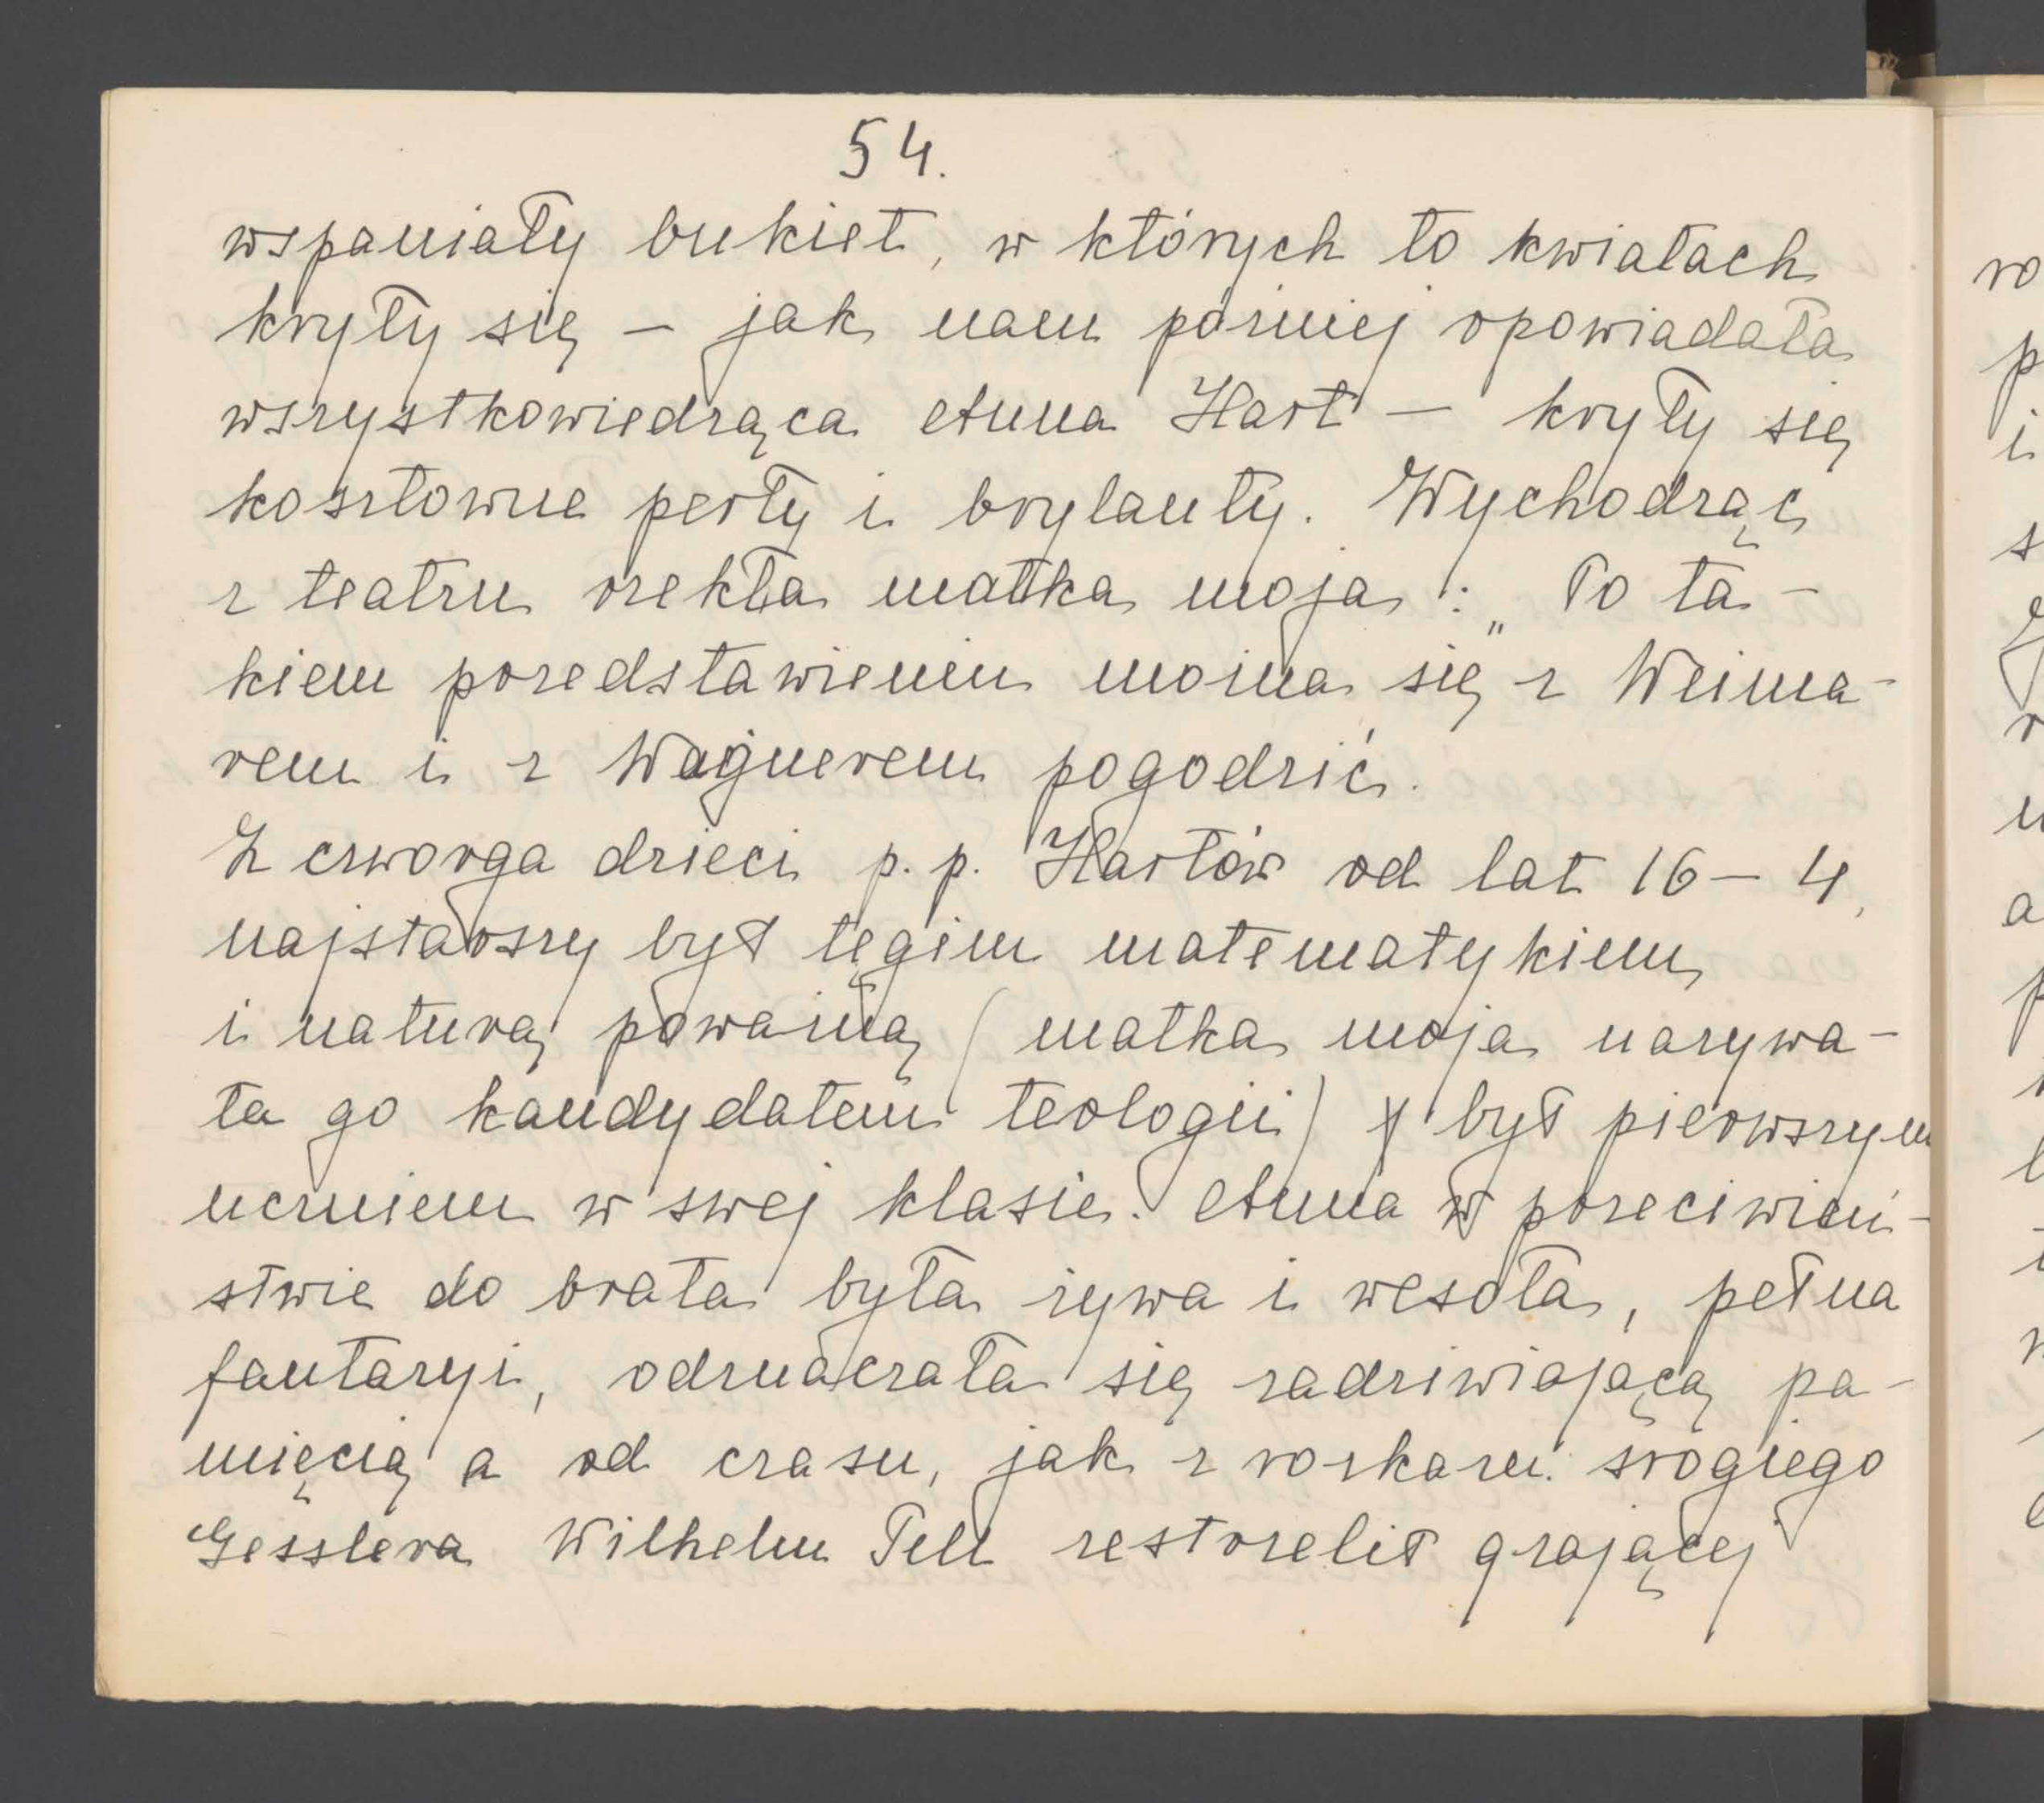 54.
wspaniały bukiet, w których to kwiatach
kryły się – jak nam później opowiadała
wszystkowiedząca Anna Hart – kryły się
kosztowne perły i brylanty. Wychodząc
z teatru rzekła matka moja: „To ta-
kiem przedstawieniem można się z Weima-
rem i z Wagnerem pogodzić.
Z czworga dzieci p. p. Hartów od lat 16 – 4,
najstarszy był tęgim matematykiem
i naturą poważną (matka moja nazywa-
ła go kandydatem teologii) był pierwszym
uczniem w swej klasie. Anna w przeciwień-
stwie do brata była żywa i wesoła, pełna
fantazyi, odznaczała się zadziwiającą pa-
mięcią a od czasu, jak z rozkazu srogiego
Gesslera Wilhelm Tell zestrzelił grającej